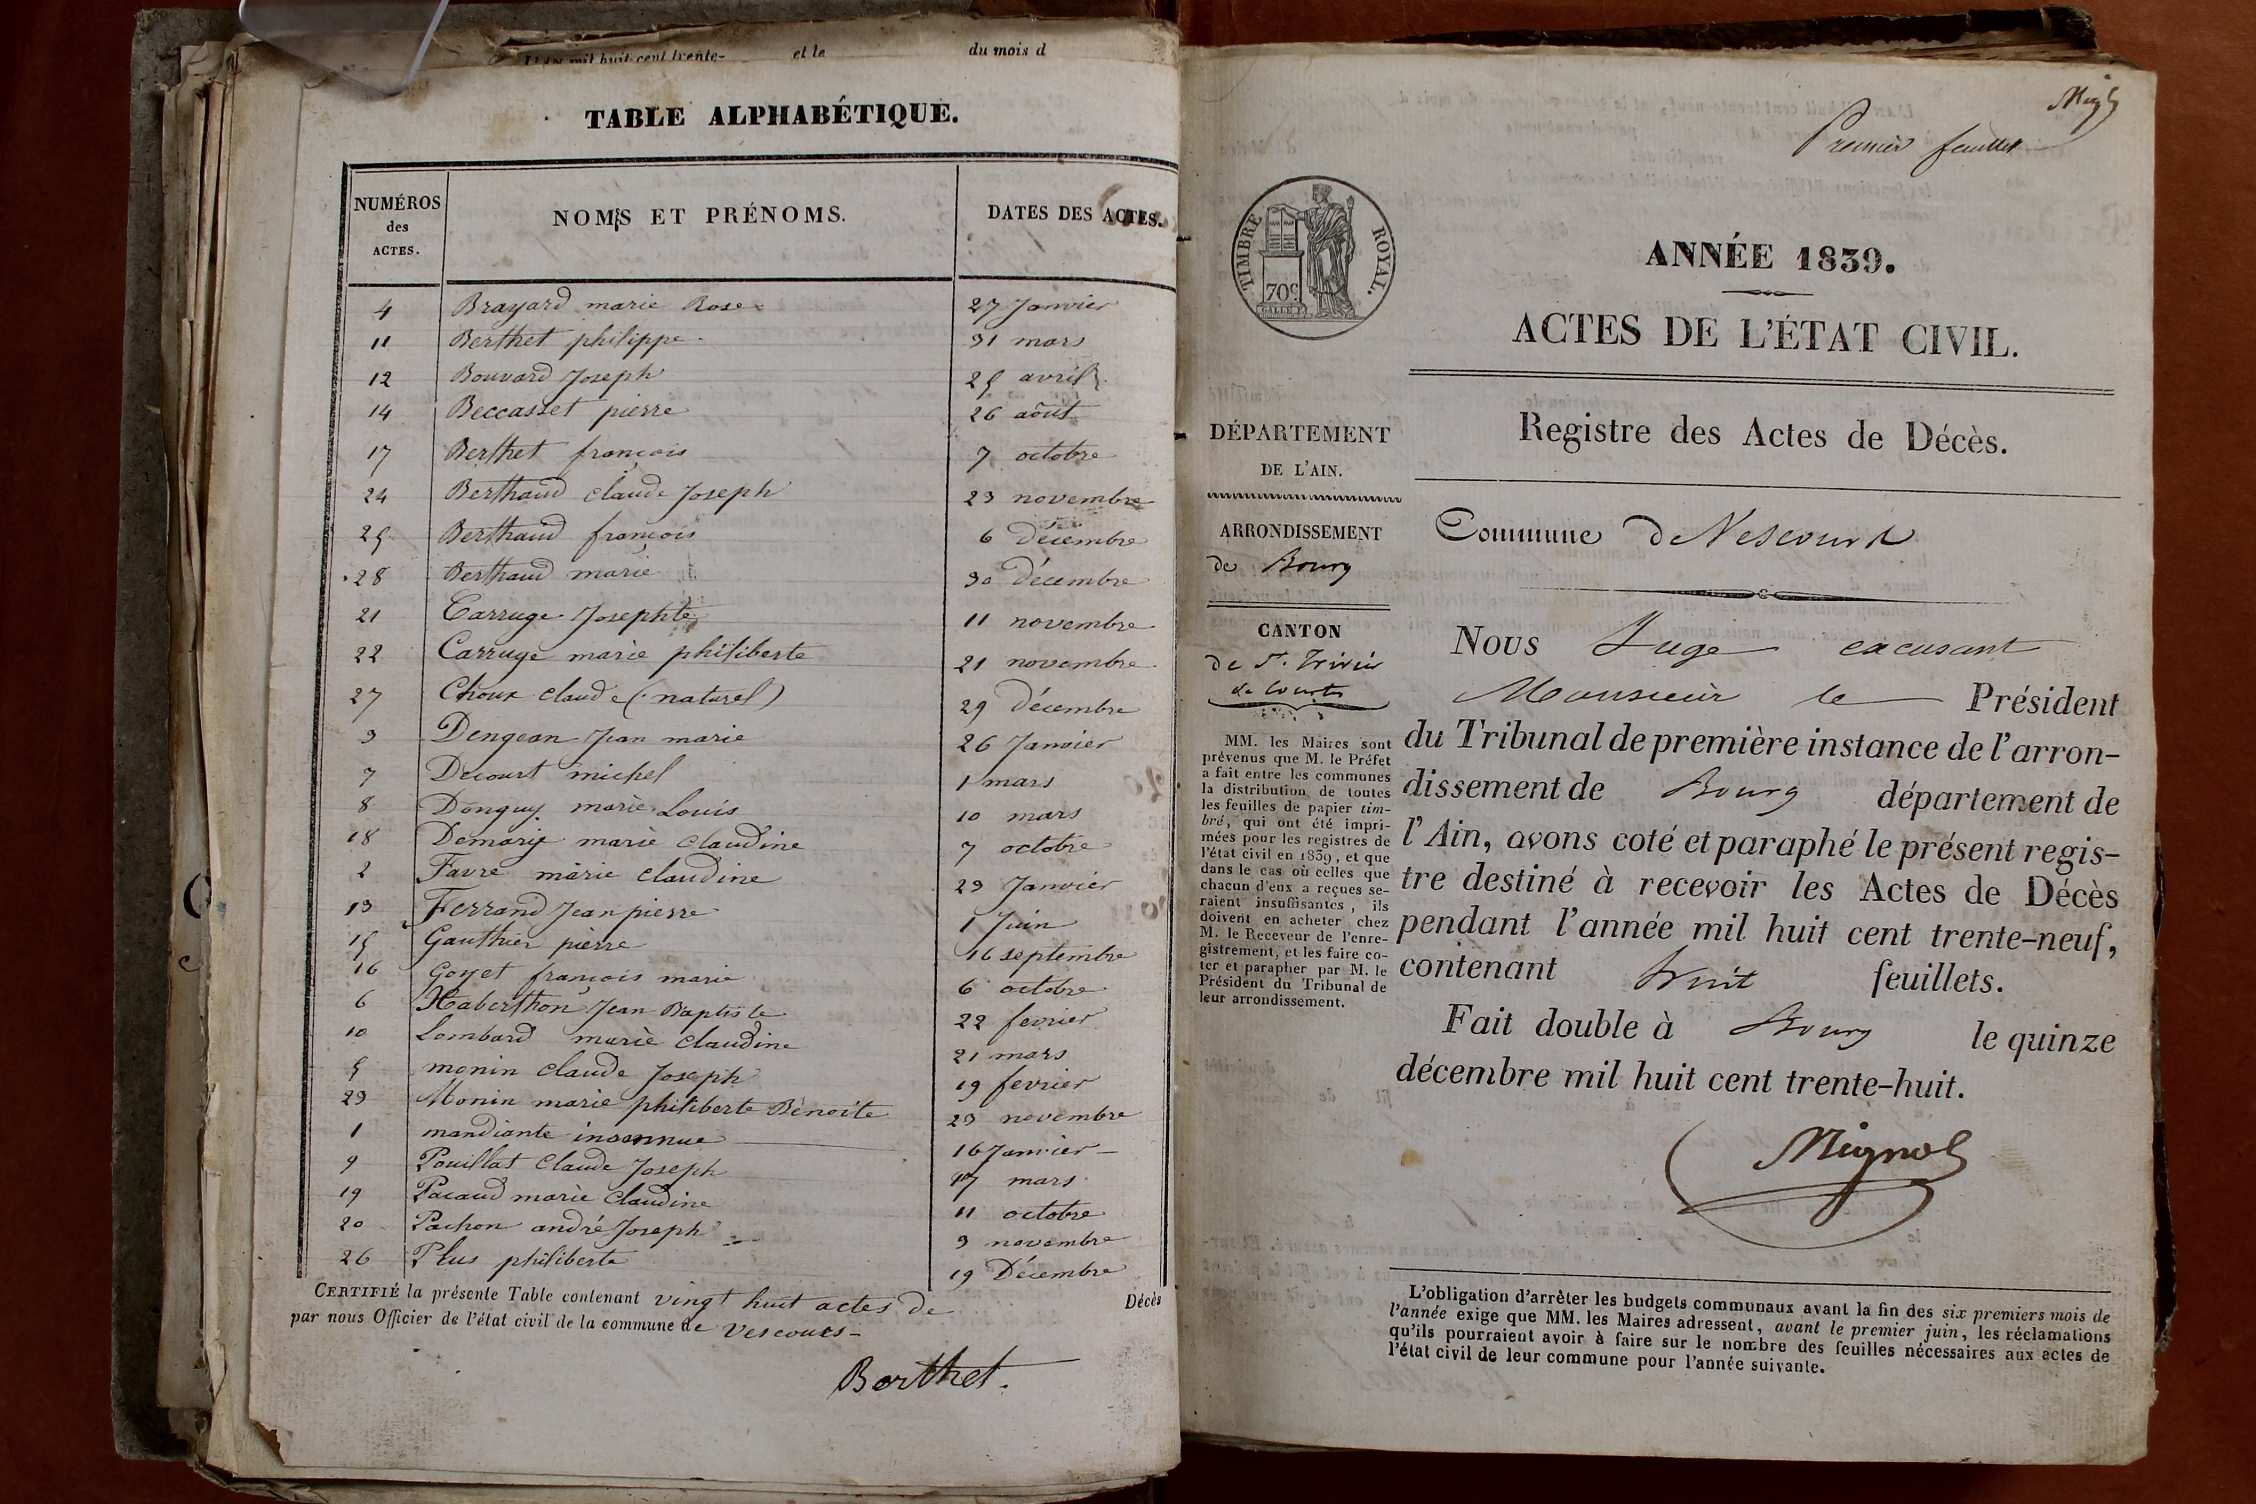 L'AN mil huit cent trente- et le du mois d
TABLE ALPHABÉTIQUE.
NUMÉROS des ACTES.
NOMS ET PRÉNOMS.
DATES DES ACTES.
4 Brayard marie Rose 27 Janvier
11 Berthet philippe 31 mars
12 Bouvard Joseph 25 avril
14 Beccasset pierre 26 août
17 Berthet françois 7 octobre
24 Berthaud claude Joseph 23 novembre
25 Berthaud françois 6 Décembre
28 Berthaud marie 30 décembre
21 Carruge Josephte 11 novembre
22 Carruge marie philiberte 21 novembre
27 Choux claude (naturel) 29 Décembre
3 Dengean Jean marie 26 Janvier
7 Decourt michel 1 mars
8 Donguy marie Louis 10 mars
18 marie claudine 7 octobre
2 Favre marie claudine 23 Janvier
13 Ferrand Jean pierre 1 Juin
15 Gauthier pierre 16 septembre
16 Goyet françois marie 6 octobre
6 Haberthon Jean Baptiste 22 fevrier
10 Lombard marie claudine 21 mars
5 monin claude Joseph 19 fevrier
23 Monin marie philiberte Bènoite 23 novembre
1 mandiante inconnue 16 Janvier
9 Pouillat Claude Joseph 17 mars
19 Pacaud marie Claudine 11 octobre
20 Pachon andré Joseph 3 novembre
26 Plus philiberte 19 Décembre
CERTIFIÉ la présente Table contenant vingt huit actes de Décès
par nous Officier de l'état civil de la commune de Vescours
Berthet.
Premier feuillet
TIMBRE ROYAL.
70c
ANNÉE 1839.
ACTES DE L'ÉTAT CIVIL.
Registre des Actes de Décès.
DÉPARTEMENT
DE L'AIN.
ARRONDISSEMENT
de Bourg
CANTON
de St. Trivier
de Courtes
MM. les Maires sont
prévenus que M. le Préfet
a fait entre les communes
la distribution de toutes
les feuilles de papier tim-
bré, qui ont été impri-
mées pour les registres de
l'état civil en 1839, et que
dans le cas où celles que
chacun d'eux a reçues se-
raient insuffisantes, ils
doivent en acheter chez
M. le Receveur de l'enre-
gistrement, et les faire co-
ter et parapher par M. le
Président du Tribunal de
leur arrondissement.
Commune de Vescourt
Nous Juge excusant
Monsieur le Président
du Tribunal de première instance de l'arron-
dissement de Bourg département de
l'Ain, avons coté et paraphé le présent regis-
tre destiné à recevoir les Actes de Décès
pendant l'année mil huit cent trente-neuf,
contenant huit feuillets.
Fait double à Bourg le quinze
décembre mil huit cent trente-huit.
Mignot
L'obligation d'arrêter les budgets communaux avant la fin des six premiers mois de
l'année exige que MM. les Maires adressent, avant le premier juin, les réclamations
qu'ils pourraient avoir à faire sur le nombre des feuilles nécessaires aux actes de
l'état civil de leur commune pour l'année suivante.